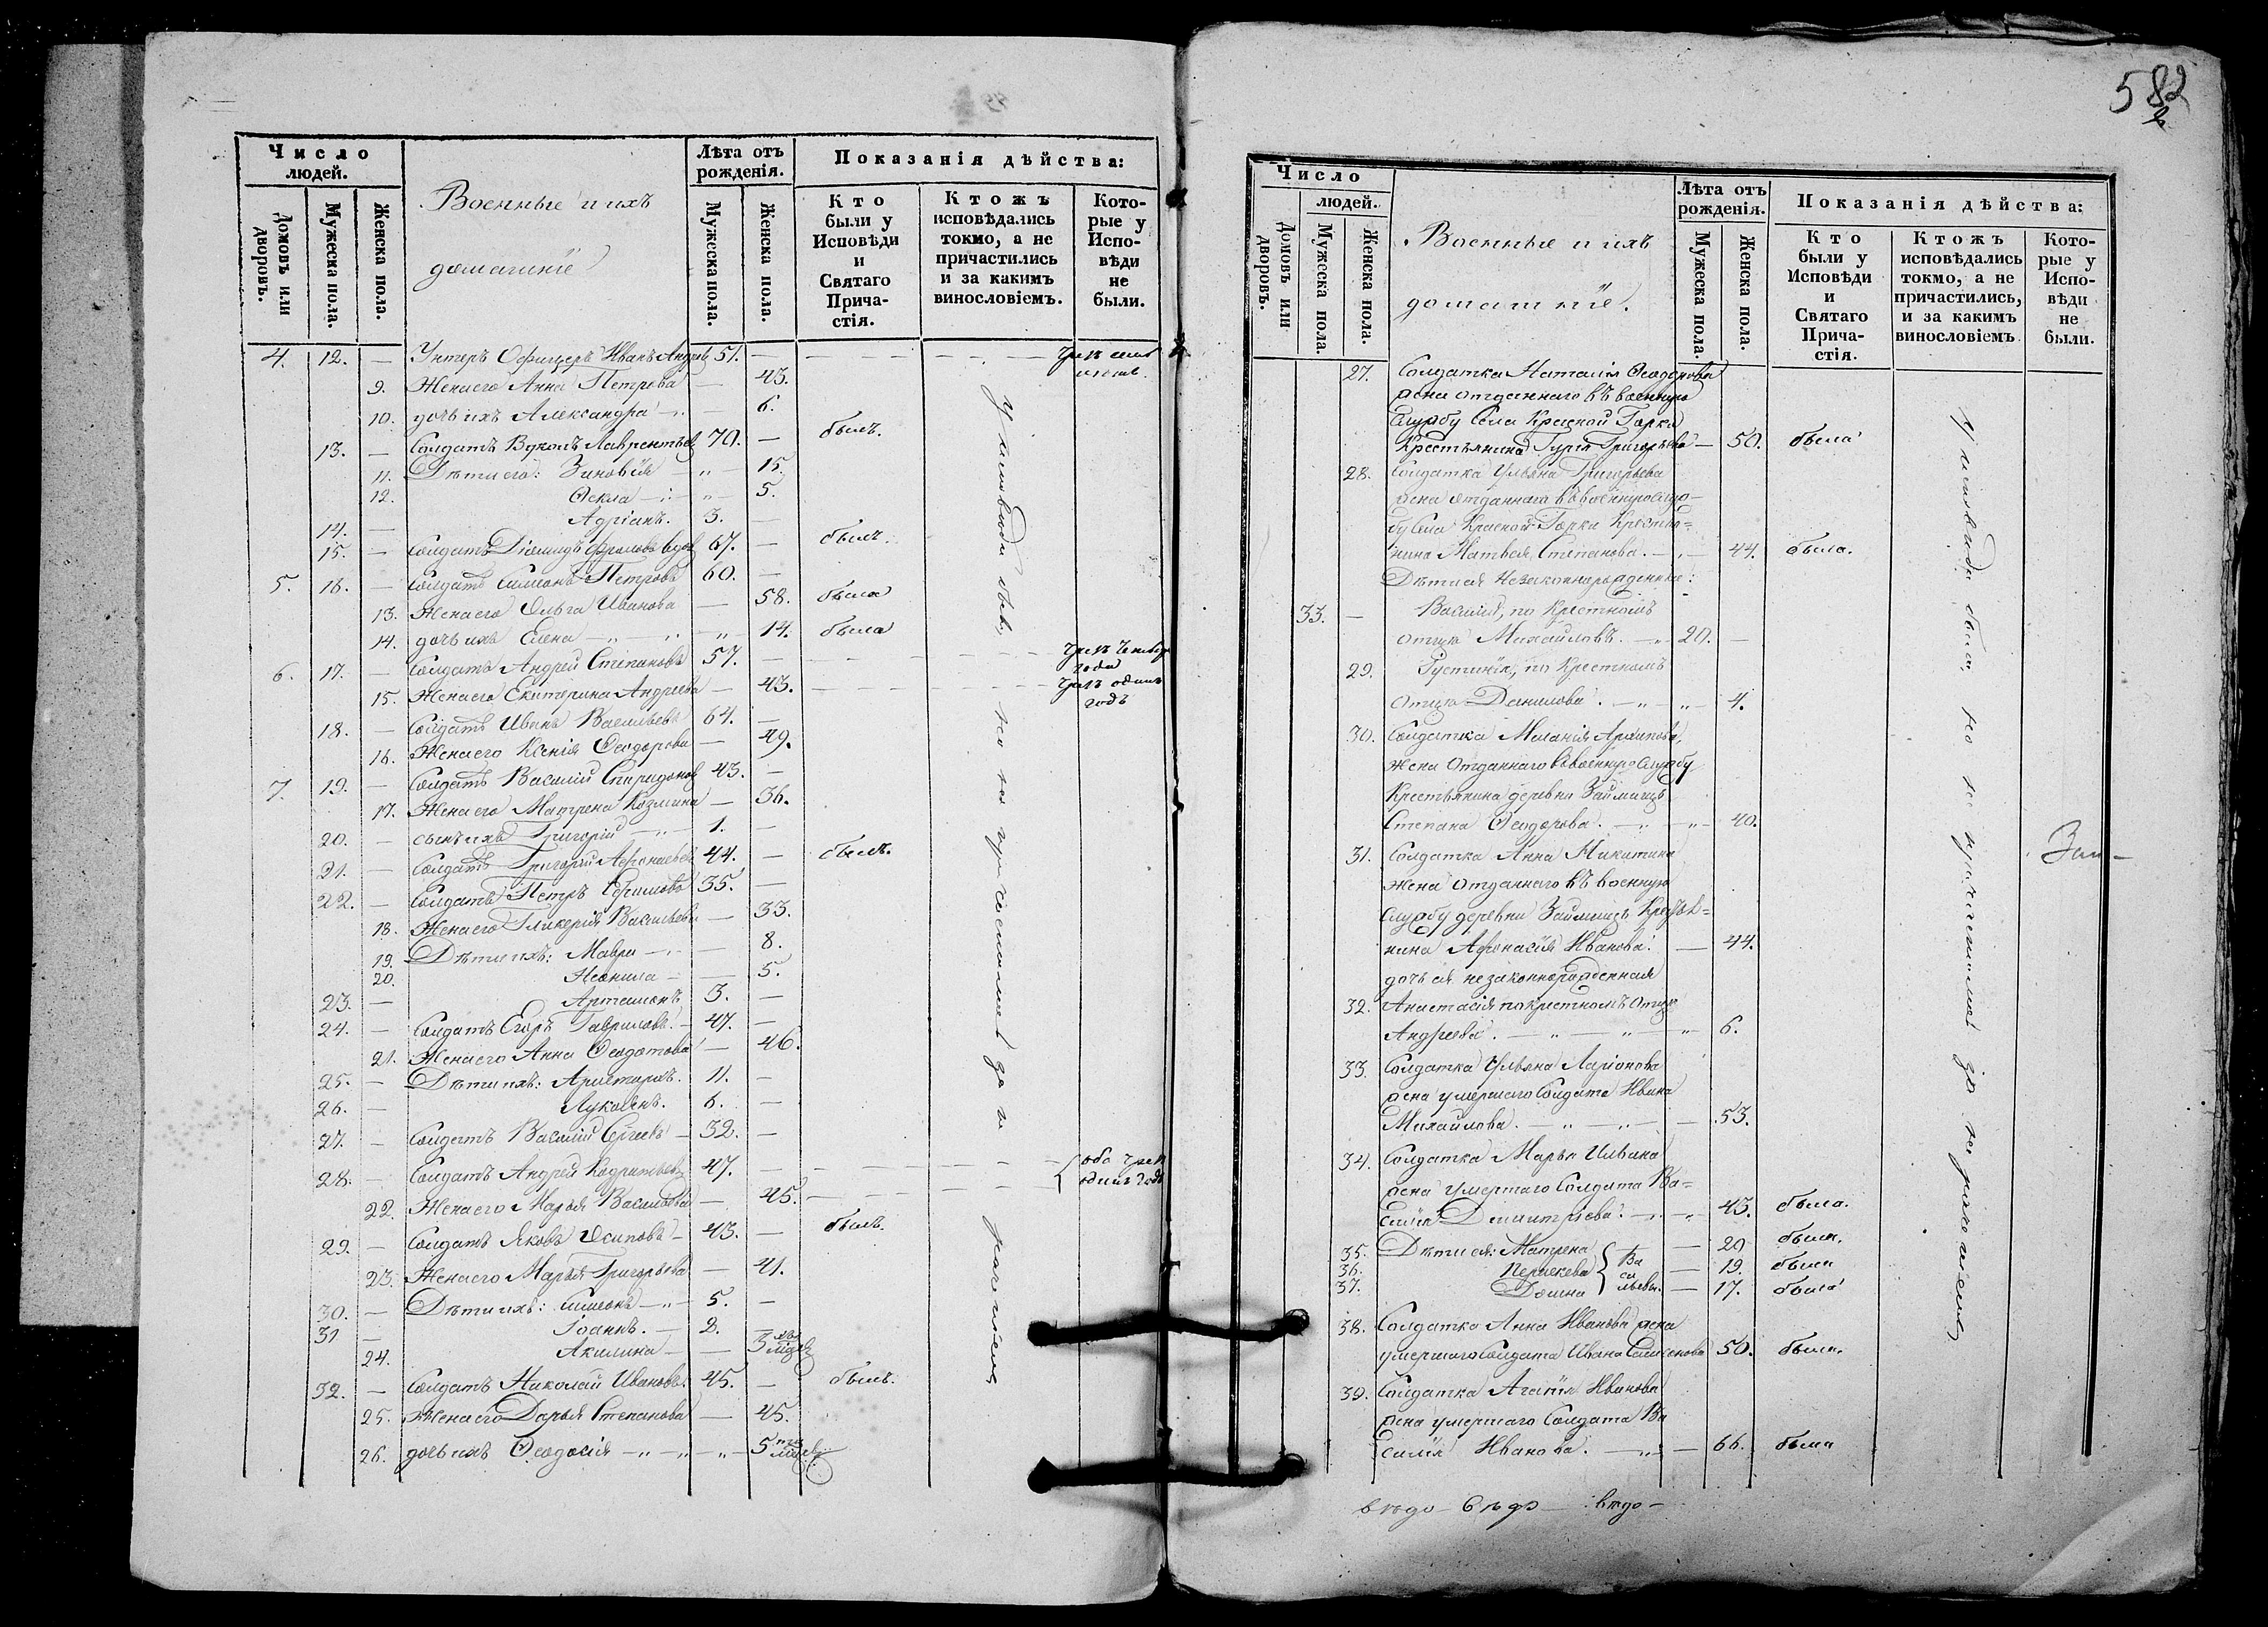 Число людей.
Домовъ или дворовъ.
Мужеска пола.
Женска пола.
Военные и ихъ
домашніе
Лѣта отъ рожденія.
Мужеска пола.
Женска пола.
Показанія дѣйства:
Кто были у Исповѣди и Святаго Причастія.
Ктожъ исповѣдались токмо, а не причастились и за какимъ винословіемъ.
Которые у Исповѣди не были.
4. 12. — Унтеръ Офицеръ Иванъ 51. —
9. Жена его Анна Петрова — 43.
10. дочь ихъ Александра — 6.
13. — Солдатъ Вуколъ Лаврентьев 70. — былъ.
11. Дѣти его: Зиновія — 15.
12. Фекла — 5.
14. — Адріанъ. 3. —
15. — Солдатъ Діомидъ Фроловъ вдов 67. — былъ.
5. 16. — Солдатъ Симеонъ Петровъ 60. —
13. Жена его Ольга Иванова — 58. была
14. дочь ихъ Елена — 14. была
6. 17. — Солдатъ Андрей Степановъ 57. —
15. Жена его Екатерина Андреева — 43. — чрезъ одинъ годъ
18. — Солдатъ Иванъ Васильевъ 64. —
16. Жена его Ксенія Феодорова — 49.
7. 19. — Солдатъ Василій Спиридонов 43. —
17. Жена его Матрена Козмина — 36.
20. — сынъ ихъ Григорій — 1. —
21. — Солдатъ Григорій Афанасьевъ 44. — былъ.
22. — Солдатъ Петръ Ефимовъ 35. —
18. Жена его Гликерія Васильева — 33.
19. Дѣти ихъ: Мавра — 8.
20. Неонила — 5.
23. — Артамонъ 3. —
24. — Солдатъ Егоръ Гавриловъ. 47. —
21. Жена его Анна Феодотова — 46.
25. — Дѣти ихъ: Аристархъ. 11. —
26. — Лукіанъ. 6. —
27. — Солдатъ Василій Сергеевъ — 32. —
28. — Солдатъ Андрей 47. — оба чрезъ одинъ годъ
22. Жена его Марья Васильева — 45.
29. — Солдатъ Яковъ Осиповъ — 43. — былъ.
23. Жена его Марья Григорьева — 41.
30. — Дѣти ихъ: Симеонъ — 5. —
31 — Іоаннъ. — 2. —
24. Акилина — — 3
32. — Солдатъ Николай Ивановъ. 45. — былъ.
25. Жена его Дарья Степанова — 45.
26. дочь ихъ Феодосія — 5
у исповѣди былъ, но не причастились за
582
Число людей.
Домовъ или дворовъ.
Мужеска пола.
Женска пола.
Военные и ихъ
домашніе.
Лѣта отъ рожденія.
Мужеска пола.
Женска пола.
Показанія дѣйства:
Кто были у Исповѣди и Святаго Причастія.
Ктожъ исповѣдались токмо, а не причастились, и за какимъ винословіемъ
Которые у Исповѣди не были.
27. Солдатка Наталія Феодорова
жена отданнаго въ военную
службу села Красной Горки
Крестьянина Гурія Григорьева — 50. была
28. Солдатка Ульяна Григорьева
жена отданнаго въ военную служ-
бу села Красной Горки Крестья=
нина Матвея Степанова. — 44. была.
Дѣти ея незаконнорожденные:
33. — Василій, по Крестномъ
отцѣ Михайловъ. — 20. —
29. Іустинія, по Крестномъ
отцѣ Данилова. — 4.
30. Солдатка Меланія Архипова,
жена отданнаго въ военную службу
Крестьянина деревни Займищъ
Степана Феодорова. — 40.
31. Солдатка Анна Никитина
жена отданнаго въ военную
службу деревни Займищъ Крестья=
нина Афанасія Иванова. — 44.
дочь ея незаконнорожденная
32. Анастасія по крестномъ отцѣ
Андреева. — 6.
33. Солдатка Ульяна Ларіонова
жена умершаго солдата Ивана
Михайлова. — 53.
34. Солдатка Марья Ильина
жена умершаго солдата Ва=
силія Димитріева. — 43. была.
35. Дѣти ея: Матрена — 20 была.
36. Пераскева — 19. была
37. Домна — 17. была
Васильевы.
38. Солдатка Анна Иванова жена
умершаго солдата Ивана Симеонова 50. была.
39. Солдатка Агафія Иванова
жена умершаго солдата Ва
силія Иванова. — 66. была
у исповѣди были, но не причастились за